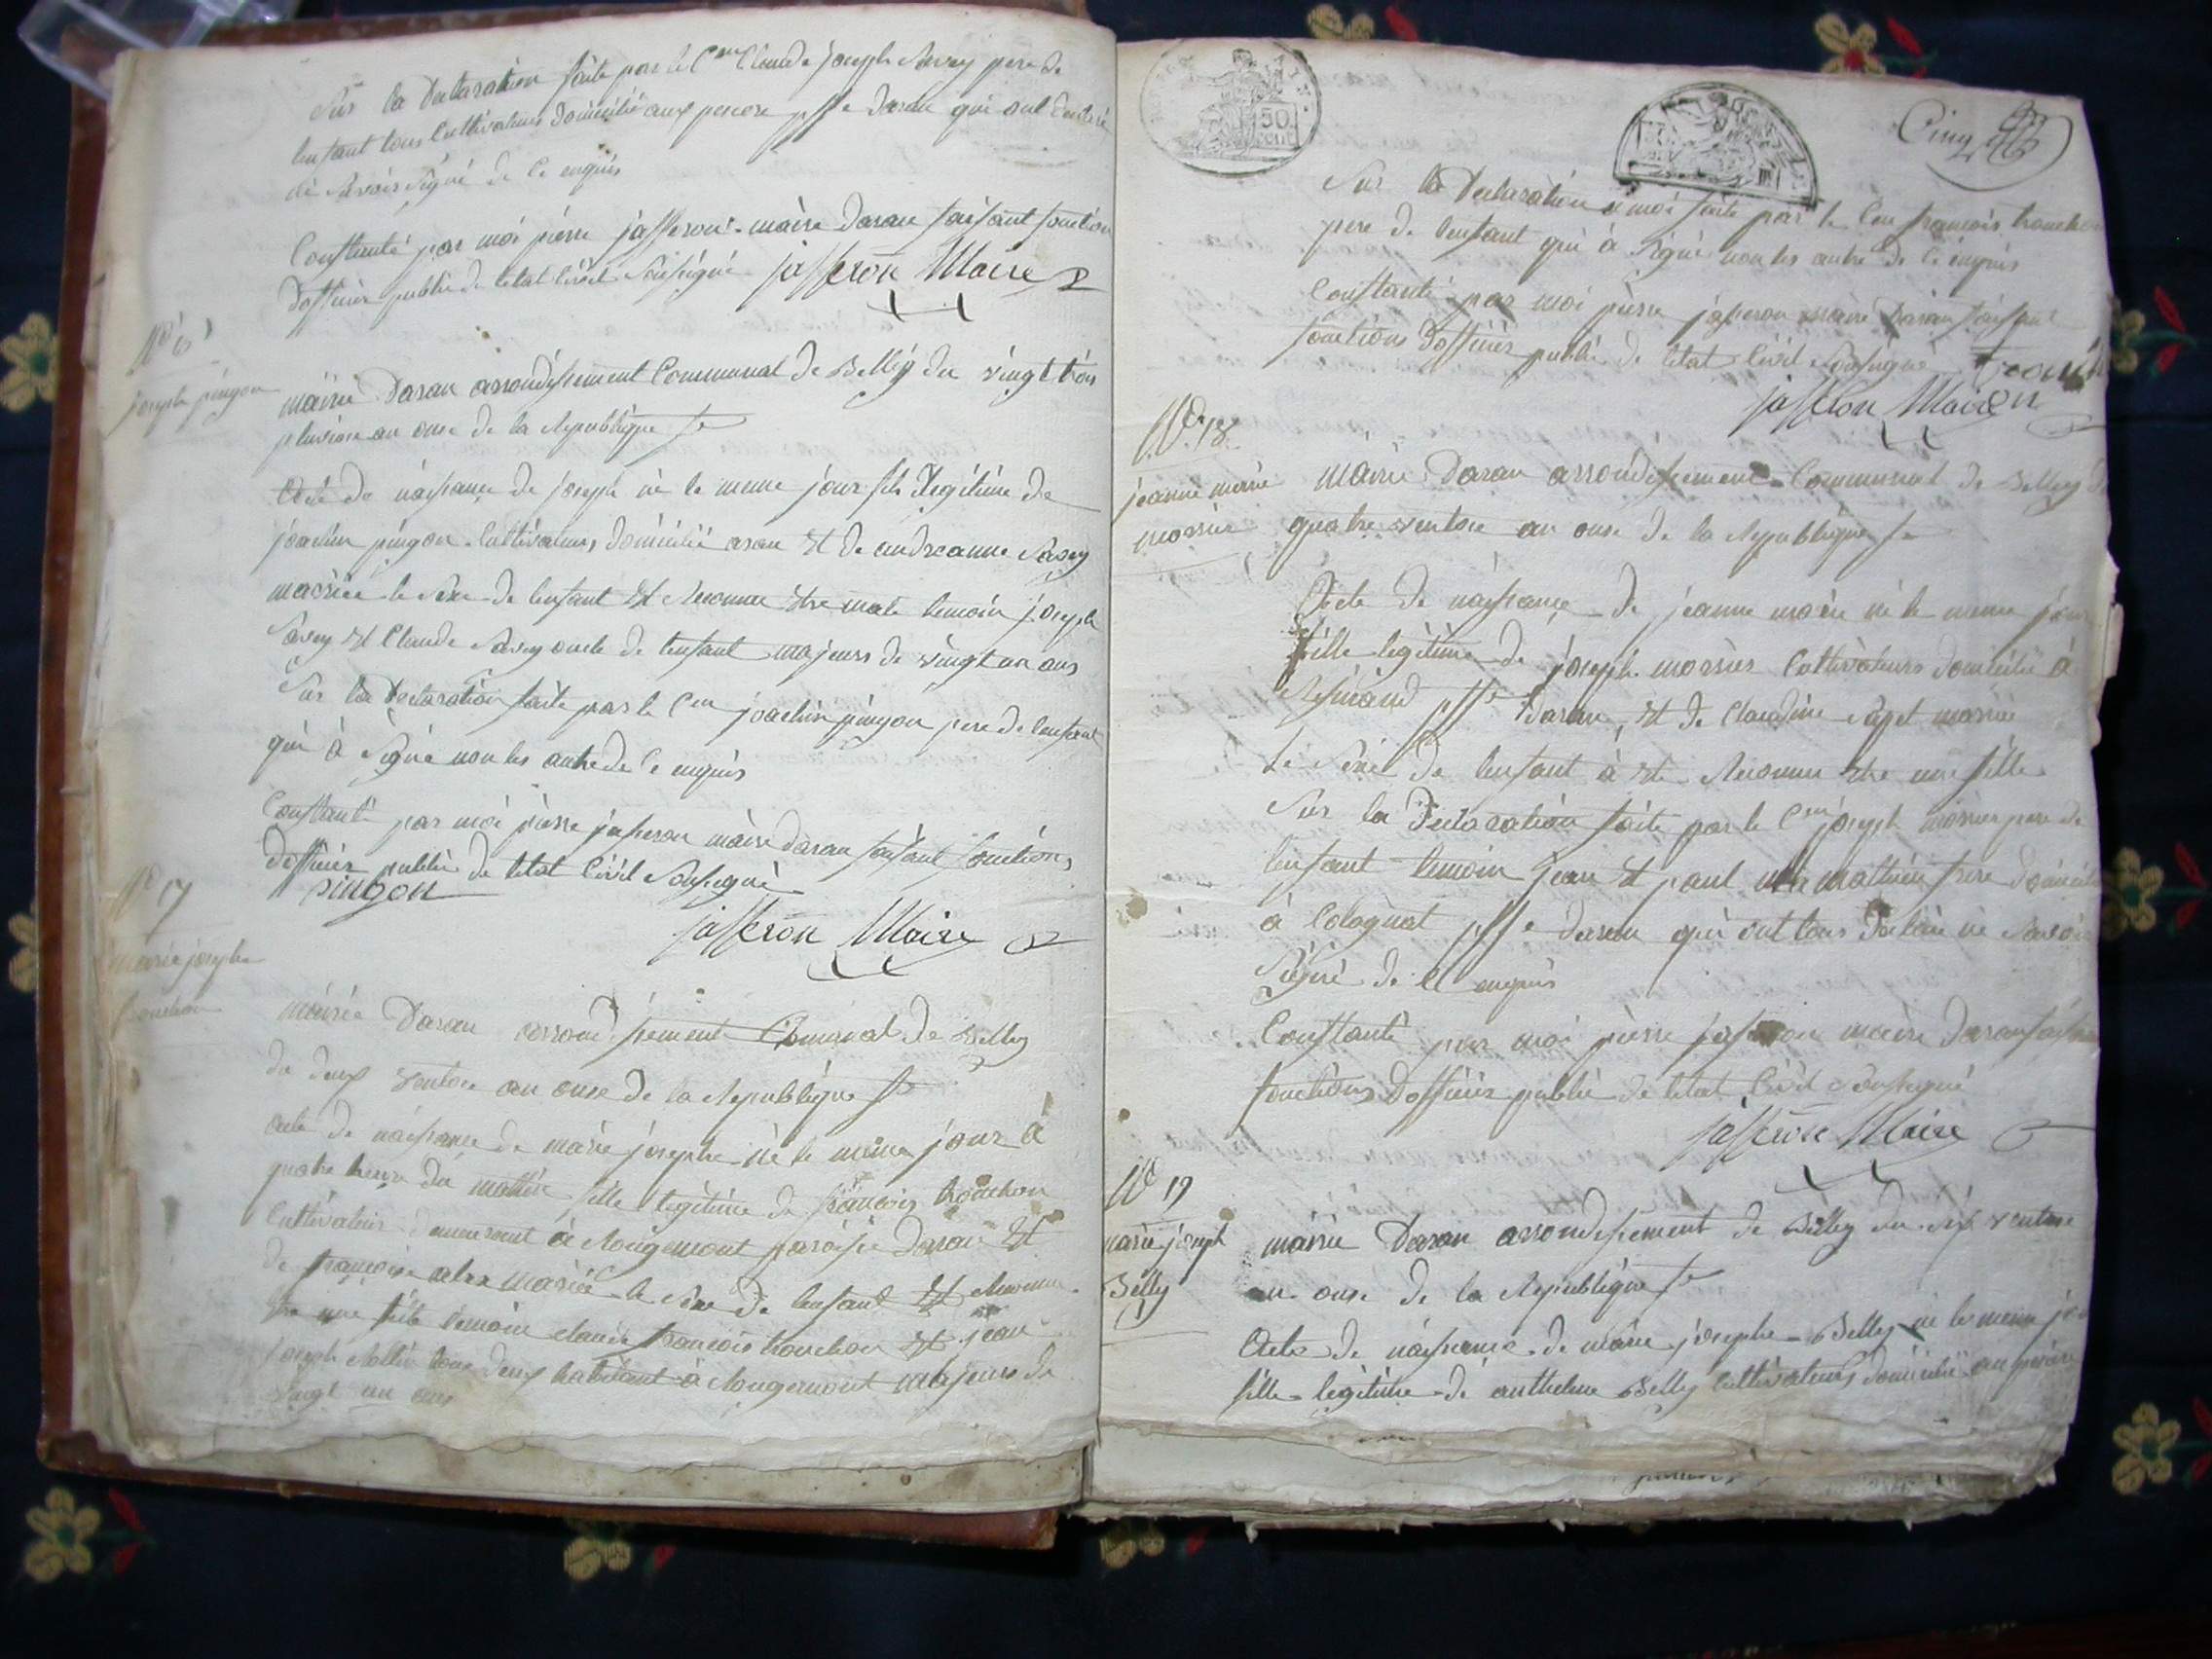 Sur la Declaration faite par le Cen Claude joseph Savey pere de
lenfant tous Cultivateurs domicilié aux psse Daran qui ont declaré
ne Savoir Signé de Ce enquis
Constanté par moi pierre jasseron maire Daran faisant fonction
Dofficier public de letat Civil Soussigné jasseron Maire
joseph pingon
mairie Daran arrondissement Communal de Belley du vingt trois
pluviose an onse de la Republique
Acte de naissance de joseph né le meme jour fils legitime de
joachin pingon Cultivateur domicilié aran Et de andreanne Savey
mariée le Sexe de lenfant Et Reconnu Etre male temoin joseph
Savey Et Claude Savey oncle de lenfant majeurs de vingt un ans
Sur la Declaration faite par le Cen joachin pingon pere de lenfant
qui à Signé non les autre de Ce enquis
Constanté par moi pierre jasseron maire daran faisant fonctions
dofficier public de letat Civil Soussigné
pingon
jasseron Maire
No 17
marie josephe
tronchon
mairie Daran arrondissement Comunal de Belley
du deux ventose an onse de la Republique
acte de naissance de marie josephe né le meme jour à
quatre heure du mattin fille legitime de francois tronchon
Cultivateur demeurant à Rougemont paroisse Daran Et
de francoise mariée le Sexe de lenfant Et Reconnu
Etre une fille temoin Claude francois tronchon Et jean
joseph tous deux habitant à Rougemont majeurs de
vingt un ans
Cinq
50
Sur la Declaration a moi faite par le Cen francois tronchon
pere de lenfant qui à Signé non les autre de Ce enquis
Constanté par moi pierre jasseron maire Daran faisant
fonctions Dofficier public de letat Civil Soussigné
jasseron Maire
No 18
jeanne marie
morrier
mairie Daran arrondissement Communal de Belley du
quatre ventose an onse de la Republique
Acte de naissance de jeanne marie né le meme jour
fille legitime de joseph morrier Cultivateurs domicilié à
Resinand psse Daran, Et de Claudine mariée
Le Sexe de lenfant à Ete Reconnu Etre une fille
Sur la Declaration faite par le Cen joseph morrier pere de
lenfant temoin jean Et paul mathieu frere domicilié
à Colognat psse daran qui ont tous Declaré ne Savoir
Signé de Ce enquis
Constanté par moi pierre jasseron maire Daran faisant
fonctions Dofficier public de letat Civil Soussigné
jasseron Maire
No 19
marie joseph
Belley
mairie Daran arrondissement de Belley du Six ventose
an onse de la Republique
Acte de naissance de marie josephe Belley né le meme jour
fille legitime de anthelme Belley Cultivateurs domicilié au